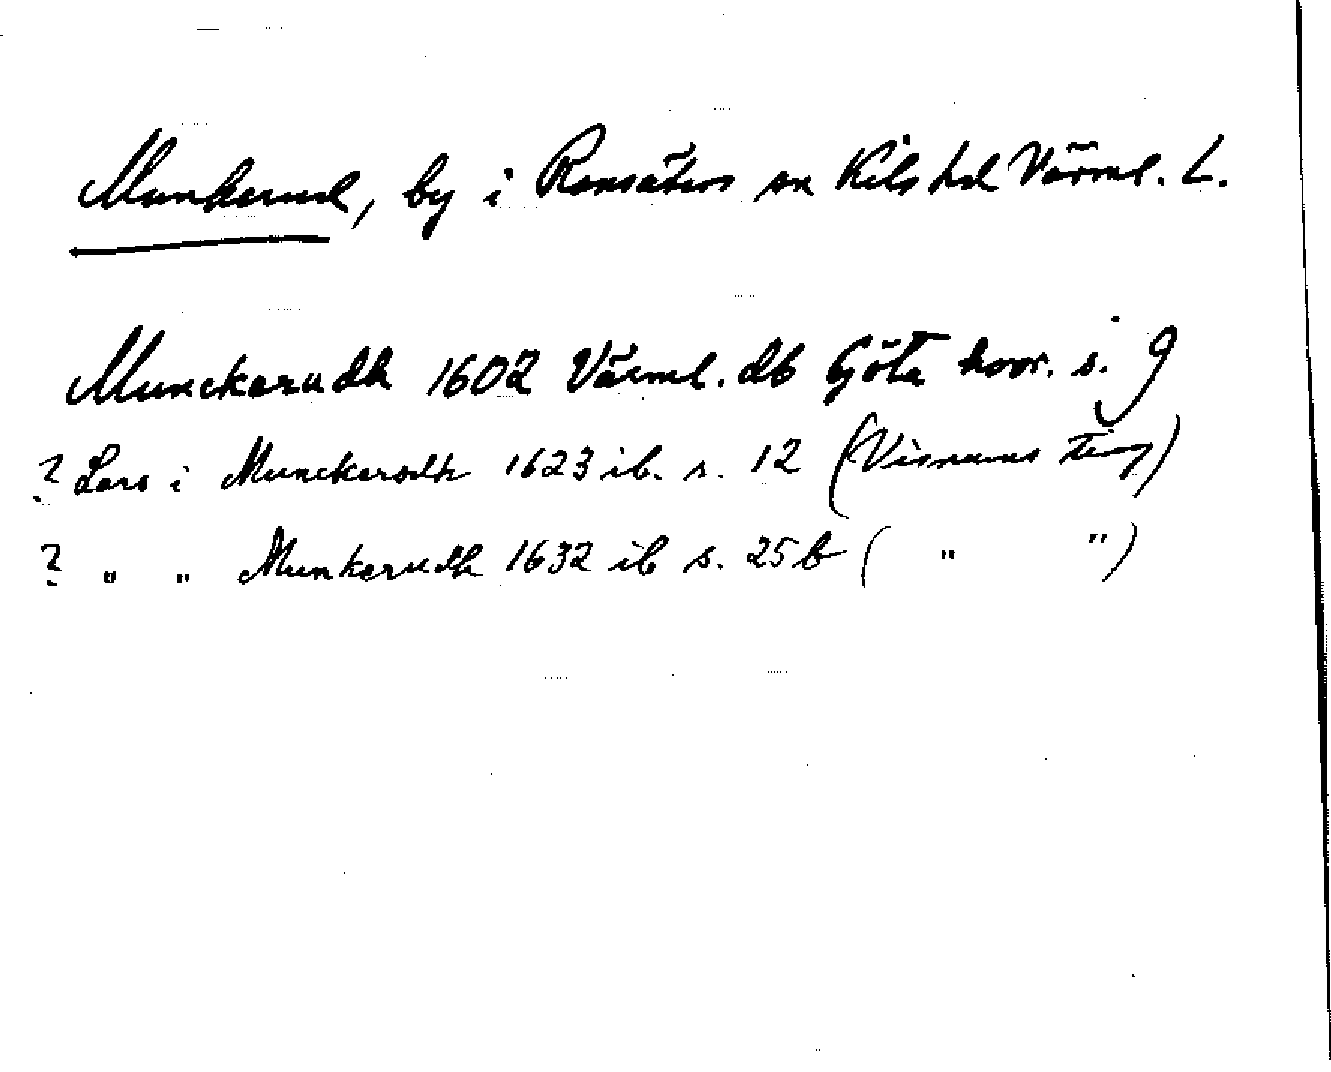 Munkerud, by i Ransäters sn Kils hd Värml. L.
Munckerudh 1602 Värml. db Göta hovr. s. 9
? Lars i Munckerodh 1623 ib. s. 12 (Visnums ting)
? " " Munkerudh 1632 ib s. 25 b ( " " )